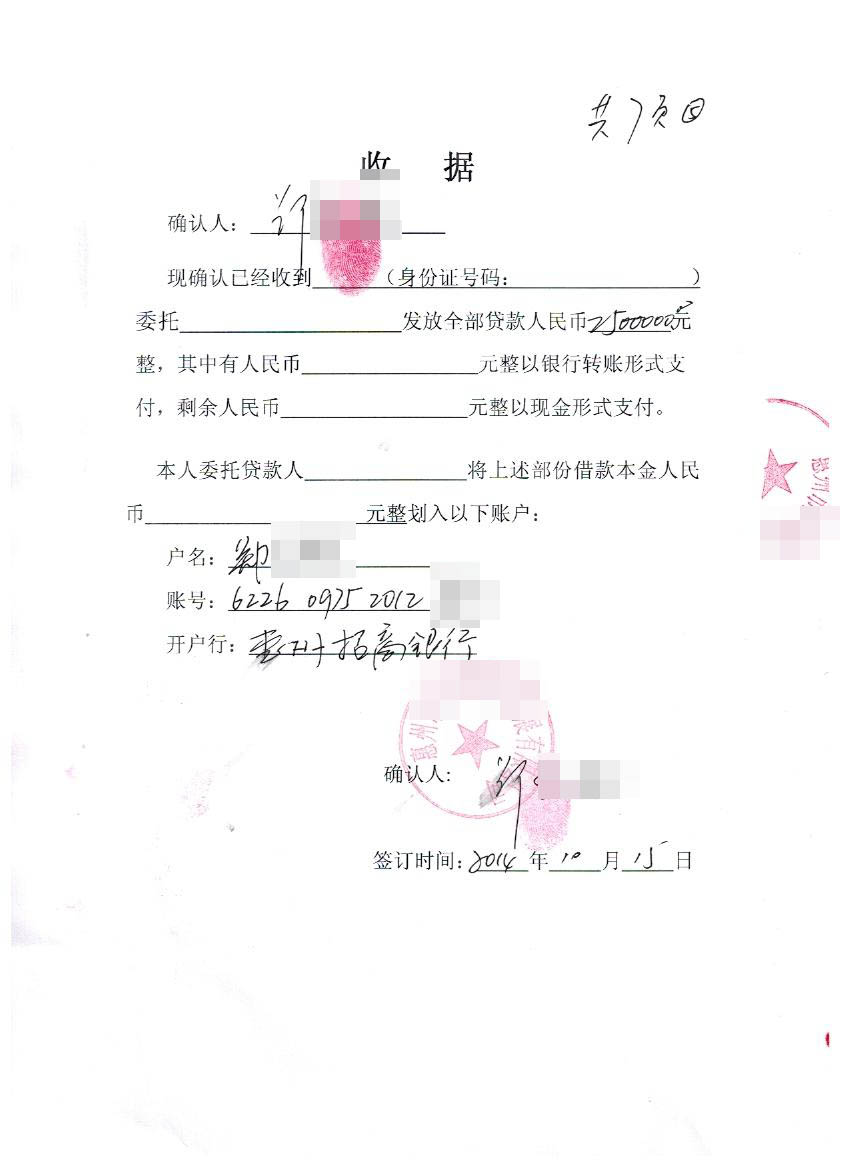 共7页⑤
收 据
确认人：许
现确认已经收到______（身份证号码：______）
委托______发放全部贷款人民币2500000元
整，其中有人民币______元整以银行转账形式支
付，剩余人民币______元整以现金形式支付。
本人委托贷款人______将上述部份借款本金人民
币______元整划入以下账户：
户名：
账号：6226 0975 2012
开户行：惠州招商银行
惠州
限有
确认人：许
签订时间：2014年10月15日
惠州